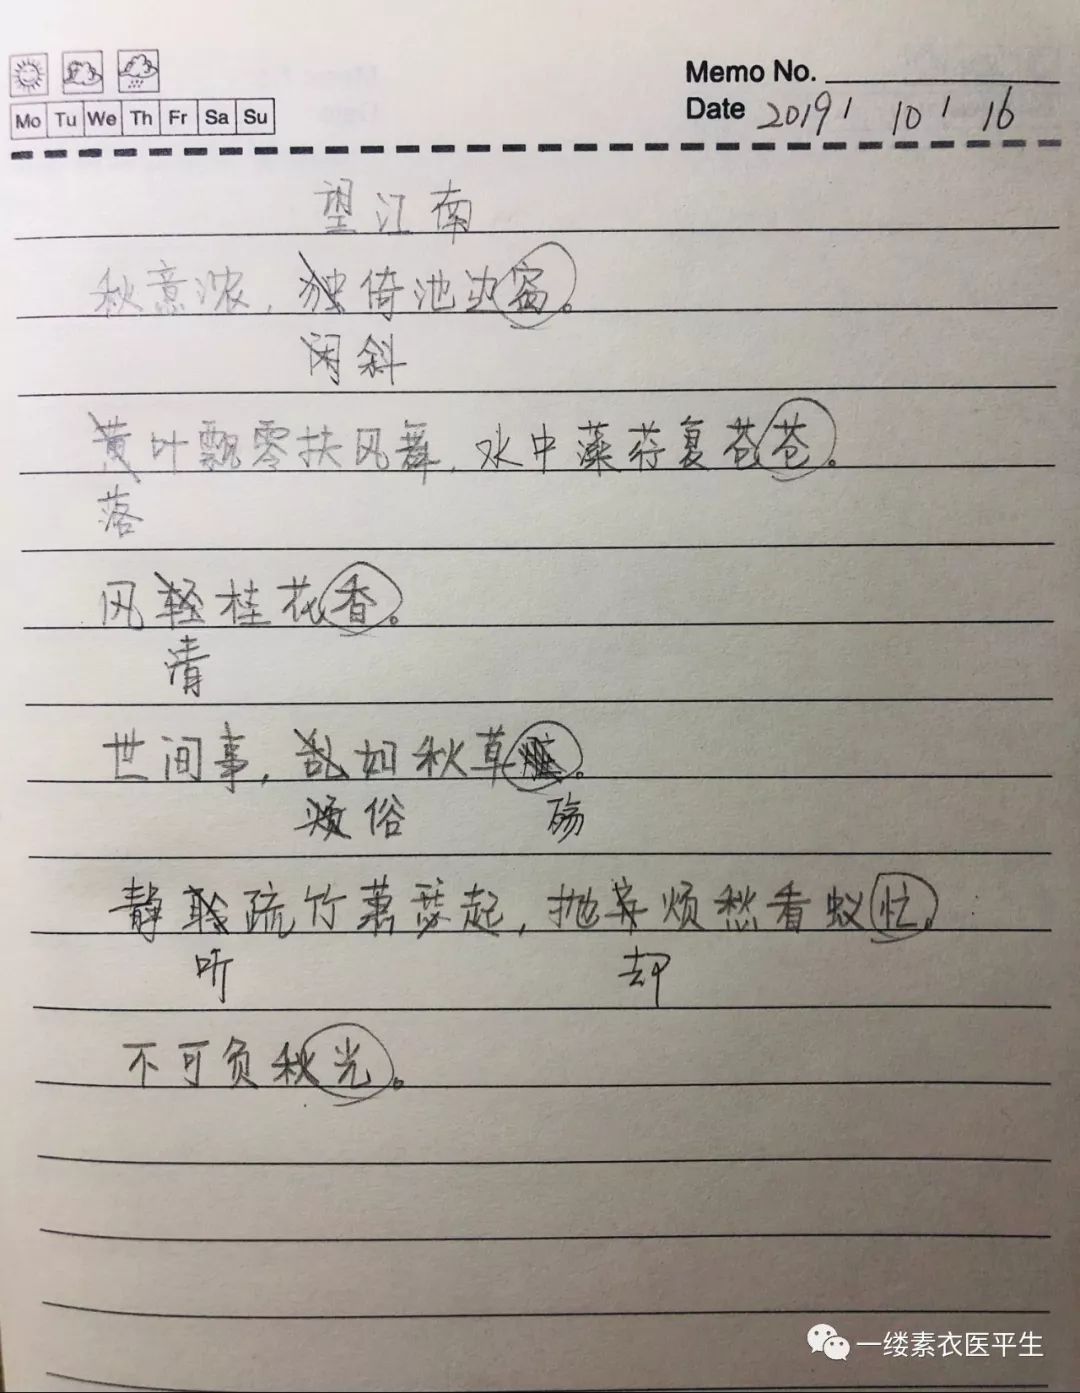 Memo No.
Mo Tu We Th Fr Sa Su
Date 2019 / 10 / 16
望江南
秋意浓，独倚池边窗。
闲斜
黄叶飘零扶风舞，水中藻荇复苍苍。
落
风轻桂花香。
清
世间事，乱如秋草。
烦俗 殇
静聆疏竹萧瑟起，抛弃烦愁看蚁忙。
听 却
不可负秋光。
一缕素衣医平生